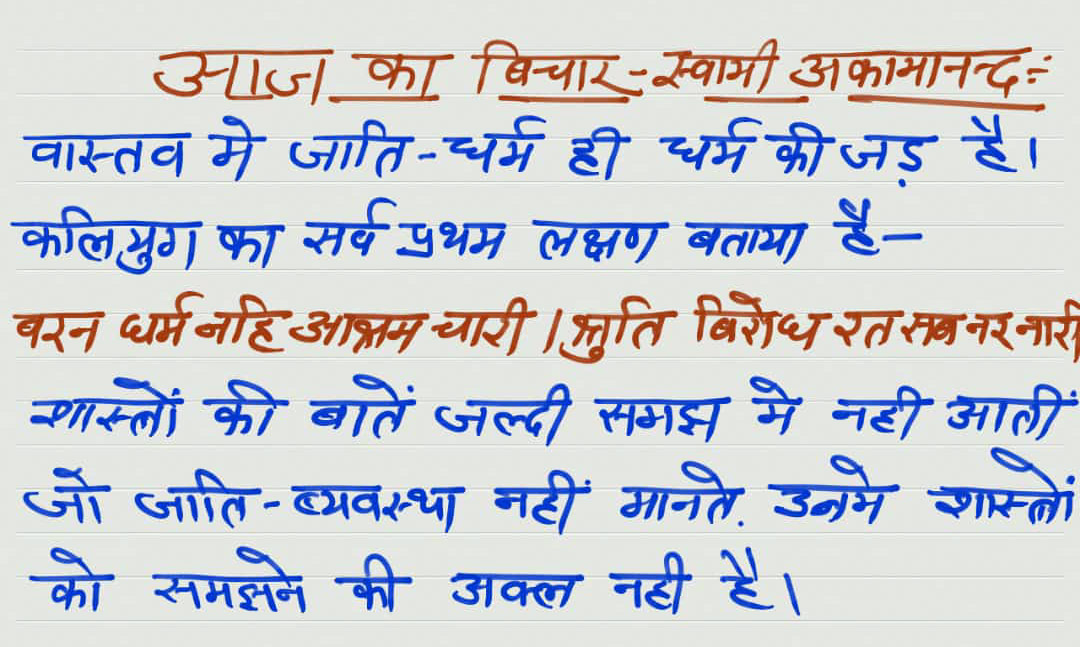 आज का बिचार - स्वामी अकामानन्द :-
वास्तव मे जाति - धर्म ही धर्म की जड़ है।
कलियुग का सर्व प्रथम लक्षण बताया है-
बरन धर्म नहि आश्रम चारी । श्रुति बिरोध रत सब नर नारी
शास्त्रों की बातें जल्दी समझ मे नही आतीं
जो जाति - व्यवस्था नहीं मानते. उनमे शास्त्रों
को समझने की अक्ल नही है।